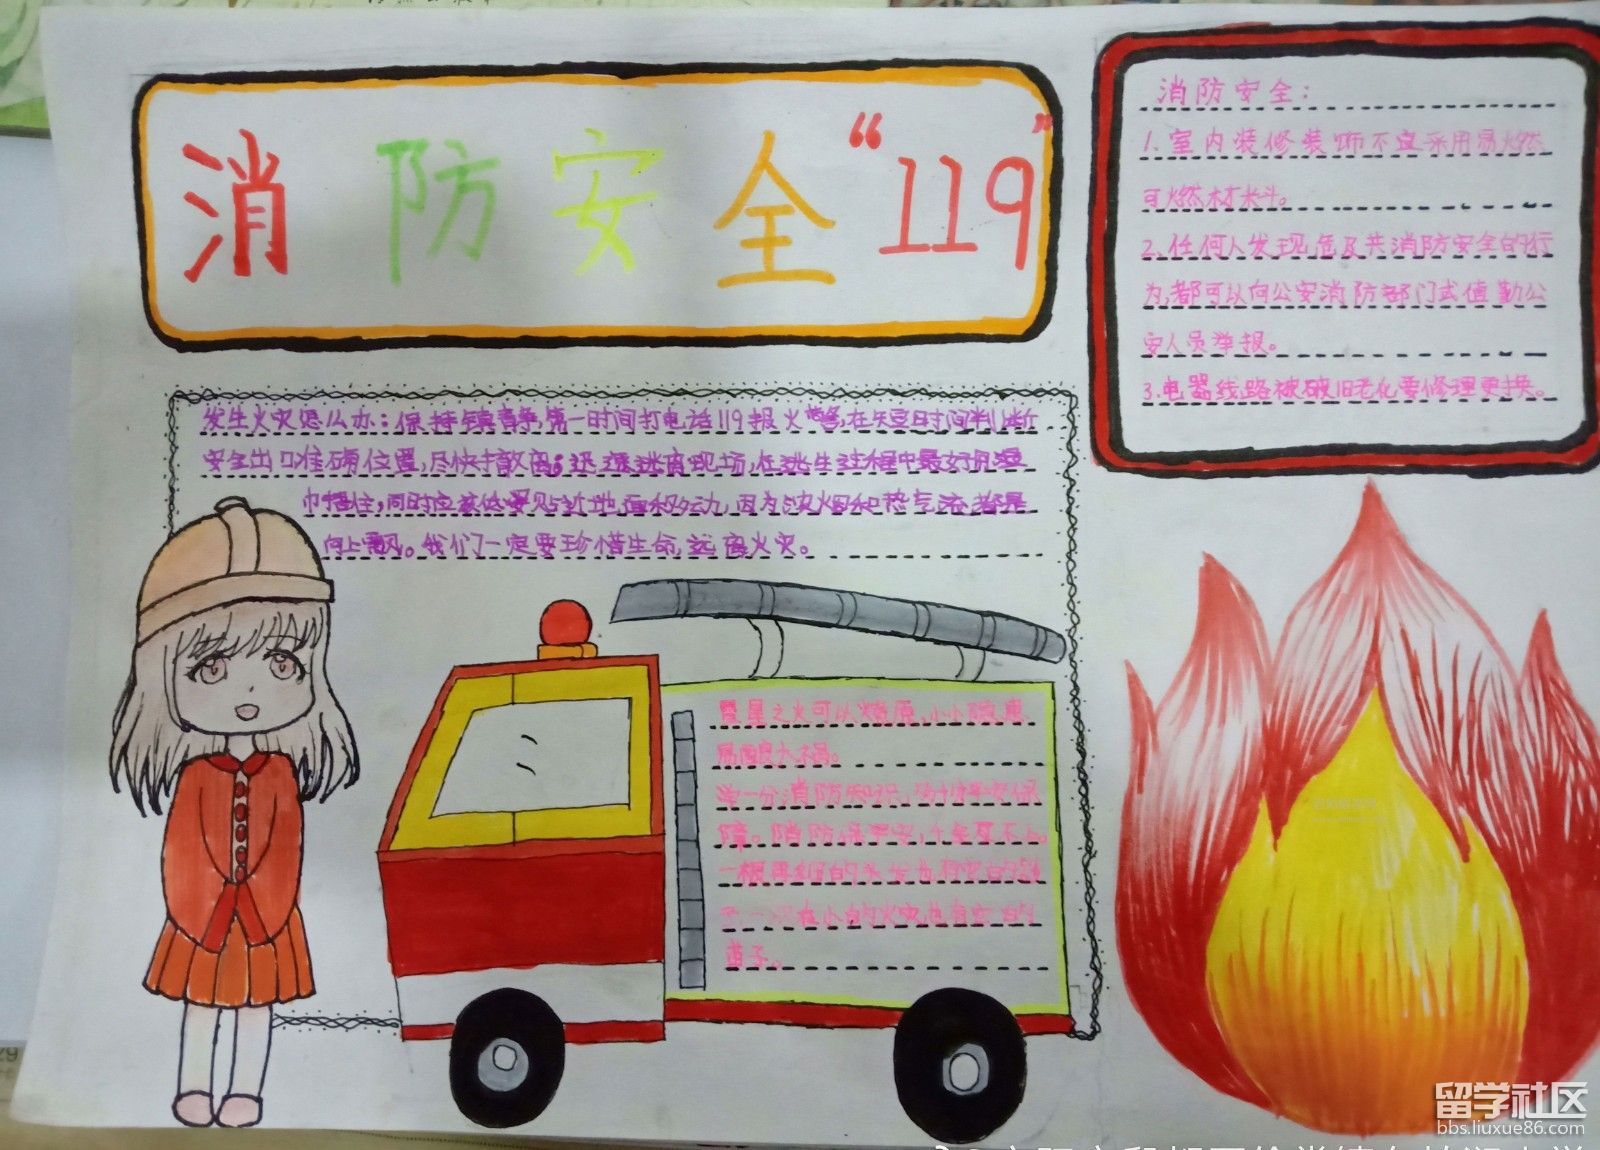 消防安全“119”
消防安全：
1、室内装修装饰不宜采用易燃
可燃材料。
2、任何人发现危及共消防安全的行
为，都可以向公安消防部门或值勤公
安人员举报。
3、电器线路被破旧老化要修理更换。
发生火灾怎么办：保持镇静，第一时间打电话119报火警，在短时间判断
安全出口准确位置，尽快撤离；迅速逃离现场，在逃生过程中最好用湿
巾捂住，同时应该低姿贴近地面移动，因为浓烟和热气流都是
向上飘。我们一定要珍惜生命，远离火灾。
星星之火可以燎原，小小隐患
易酿大祸。
学一分消防知识，
障。消防保平安，
一根再细的头发也有它的影
子 小的火灾也有它的
苗子。
留学社区
bbs.liuxue86.com